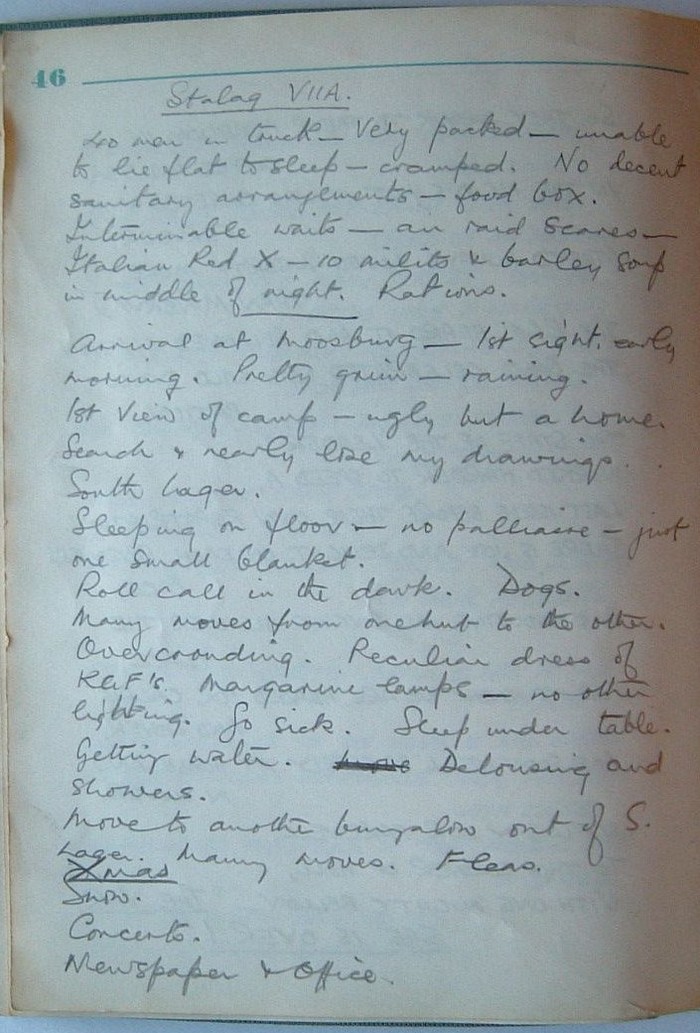 46
Stalag VIIA.
40 men in truck – Very packed – unable
to lie flat to sleep – cramped. No decent
sanitary arrangements – food box.
Interminable waits – air raid scares –
Italian Red X – 10 milits & barley soup
in middle of night. Rations.
Arrival at Moosburg – 1st sight. early
morning. Pretty grim – raining.
1st View of camp – ugly but a home.
Search & nearly lose my drawings.
South Lager.
Sleeping on floor – no palliaise – just
one small blanket.
Roll call in the dark. Dogs.
Many moves from one hut to the other.
Overcrowding. Peculiar dress of
RAF's. Margarine lamps – no other
lighting. Go sick. Sleep under table.
Getting water. Delousing and
showers.
Move to another bungalow out of S.
Lager. Many moves. Fleas.
Xmas
Snow.
Concerts.
Newspaper & Office.